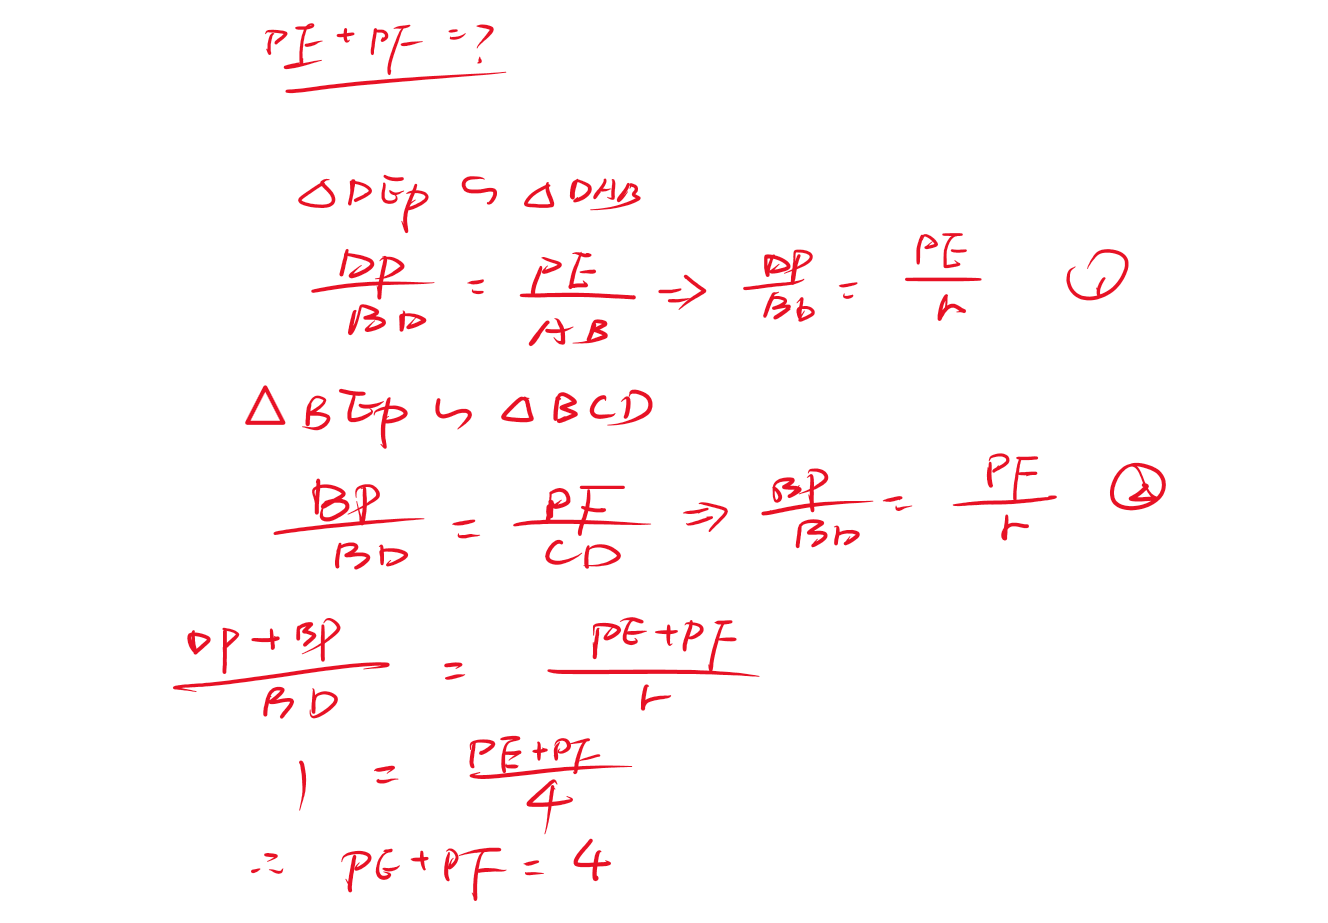 PE + PF = ?
△DEP ∽ △DAB
DP/BD = PE/AB ⇒ DP/BD = PE/r ①
△BEP ∽ △BCD
BP/BD = PF/CD ⇒ BP/BD = PF/r ②
DP+BP/BD = PE+PF/r
1 = PE+PF/4
∴ PE+PF = 4